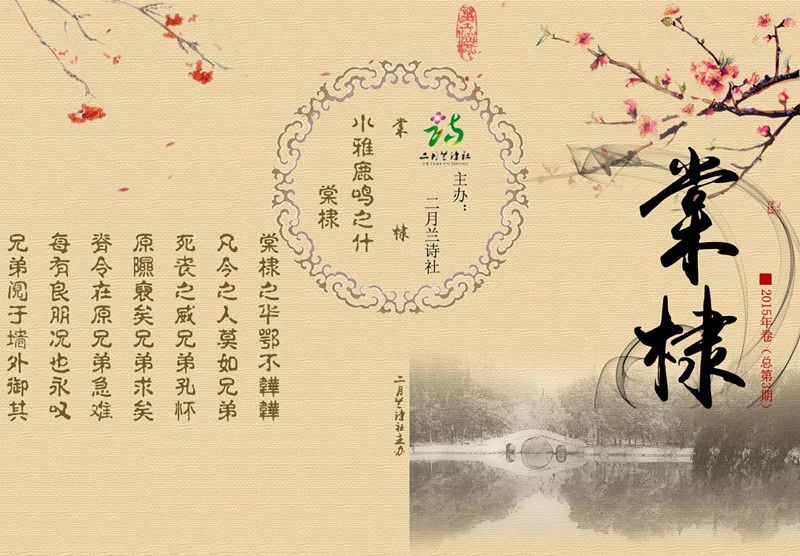 棠棣
2015年卷（总第3期）
诗
二月兰诗社
主办：
二月兰诗社
棠棣
小雅鹿鸣之什
棠棣
棠棣之华鄂不韡韡
凡今之人莫如兄弟
死丧之威兄弟孔怀
原隰裒矣兄弟求矣
脊令在原兄弟急难
每有良朋况也永叹
兄弟阋于墙外御其
二月兰诗社主办